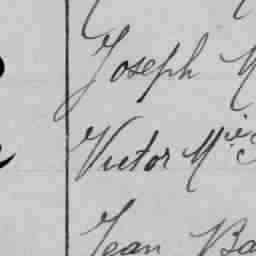 Joseph M
Victor Mie
Jean Ba